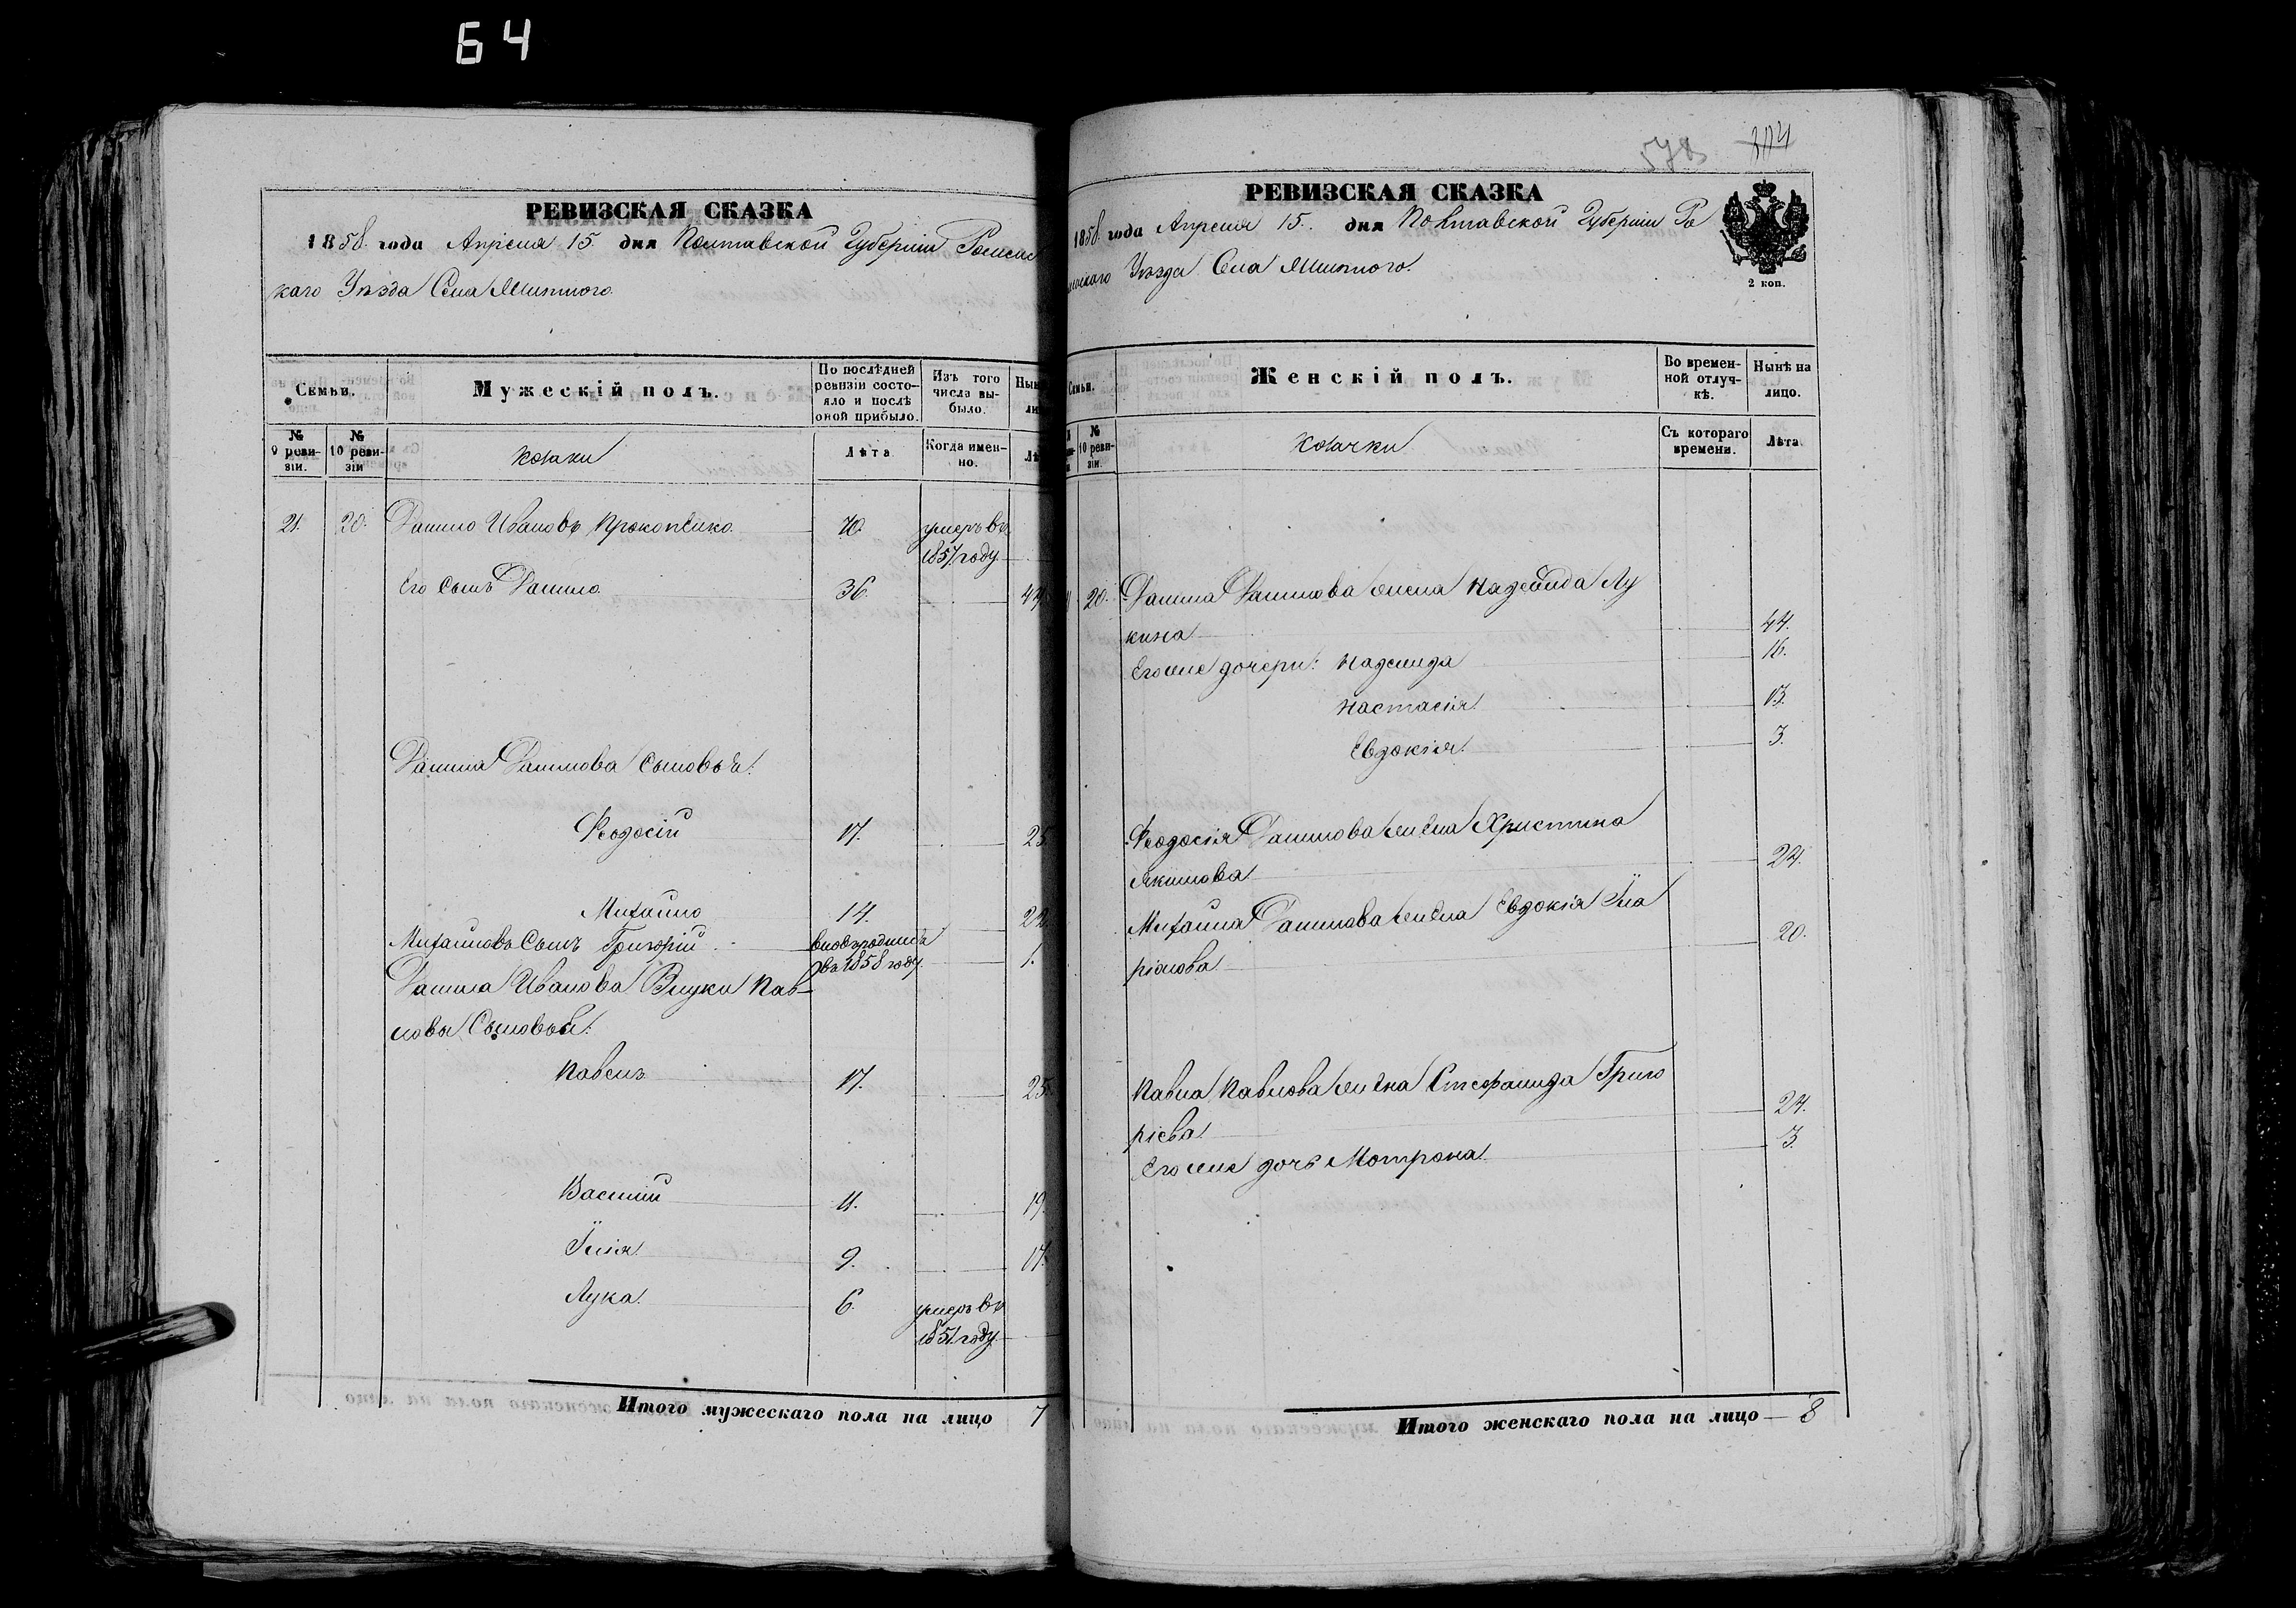 64
РЕВИЗСКАЯ СКАЗКА
1858. года Апреля 15. дня Полтавской Губерніи Роменс
каго Уѣзда Села
Семьи.
Мужескій полъ.
По послѣдней ревизіи состояло и послѣ оной прибыло.
Изъ того числа выбыло.
№ 9 ревизіи.
№ 10 ревизіи
Козаки
Лѣта
Когда именно.
21. 20. Данило Ивановъ Прокопенко 70. умеръ въ
1857 году
Его Сынъ Данило 36. 44
Данила Данилова Сыновья:
Феодосій 17. 25.
Михайло 14. 22.
Михайловъ Сынъ Григорій вновьрожденъ
въ 1858 году 1.
Данила Иванова Внуки Пав-
ловы Сыновья:
Павелъ 17. 25.
Василій 11. 19.
Илія 9. 17.
Лука 6. умеръ въ
1851 году
Итого мужескаго пола на лицо 7
578 304
РЕВИЗСКАЯ СКАЗКА
1858. года Апреля 15. дня Полтавской Губерніи Ро
менскаго Уѣзда Села
2 коп.
Семьи.
Женскій полъ.
Во временной отлучкѣ.
Нынѣ на лицо.
№ 10 ревизіи.
Козачки
Съ котораго времени.
Лѣта
20. Данила Данилова жена Надежда Лу
кина 44.
Его же дочери: Надежда 16.
Настасія 13.
Евдокія 3.
Феодосія Данилова жена Христина
Якимова 24.
Михайла Данилова жена Евдокія Ила
ріонова 20.
Павла Павлова жена Стефанида Григо
рієва 24.
Его же дочь Мотрона 3.
Итого женскаго пола на лицо — 8